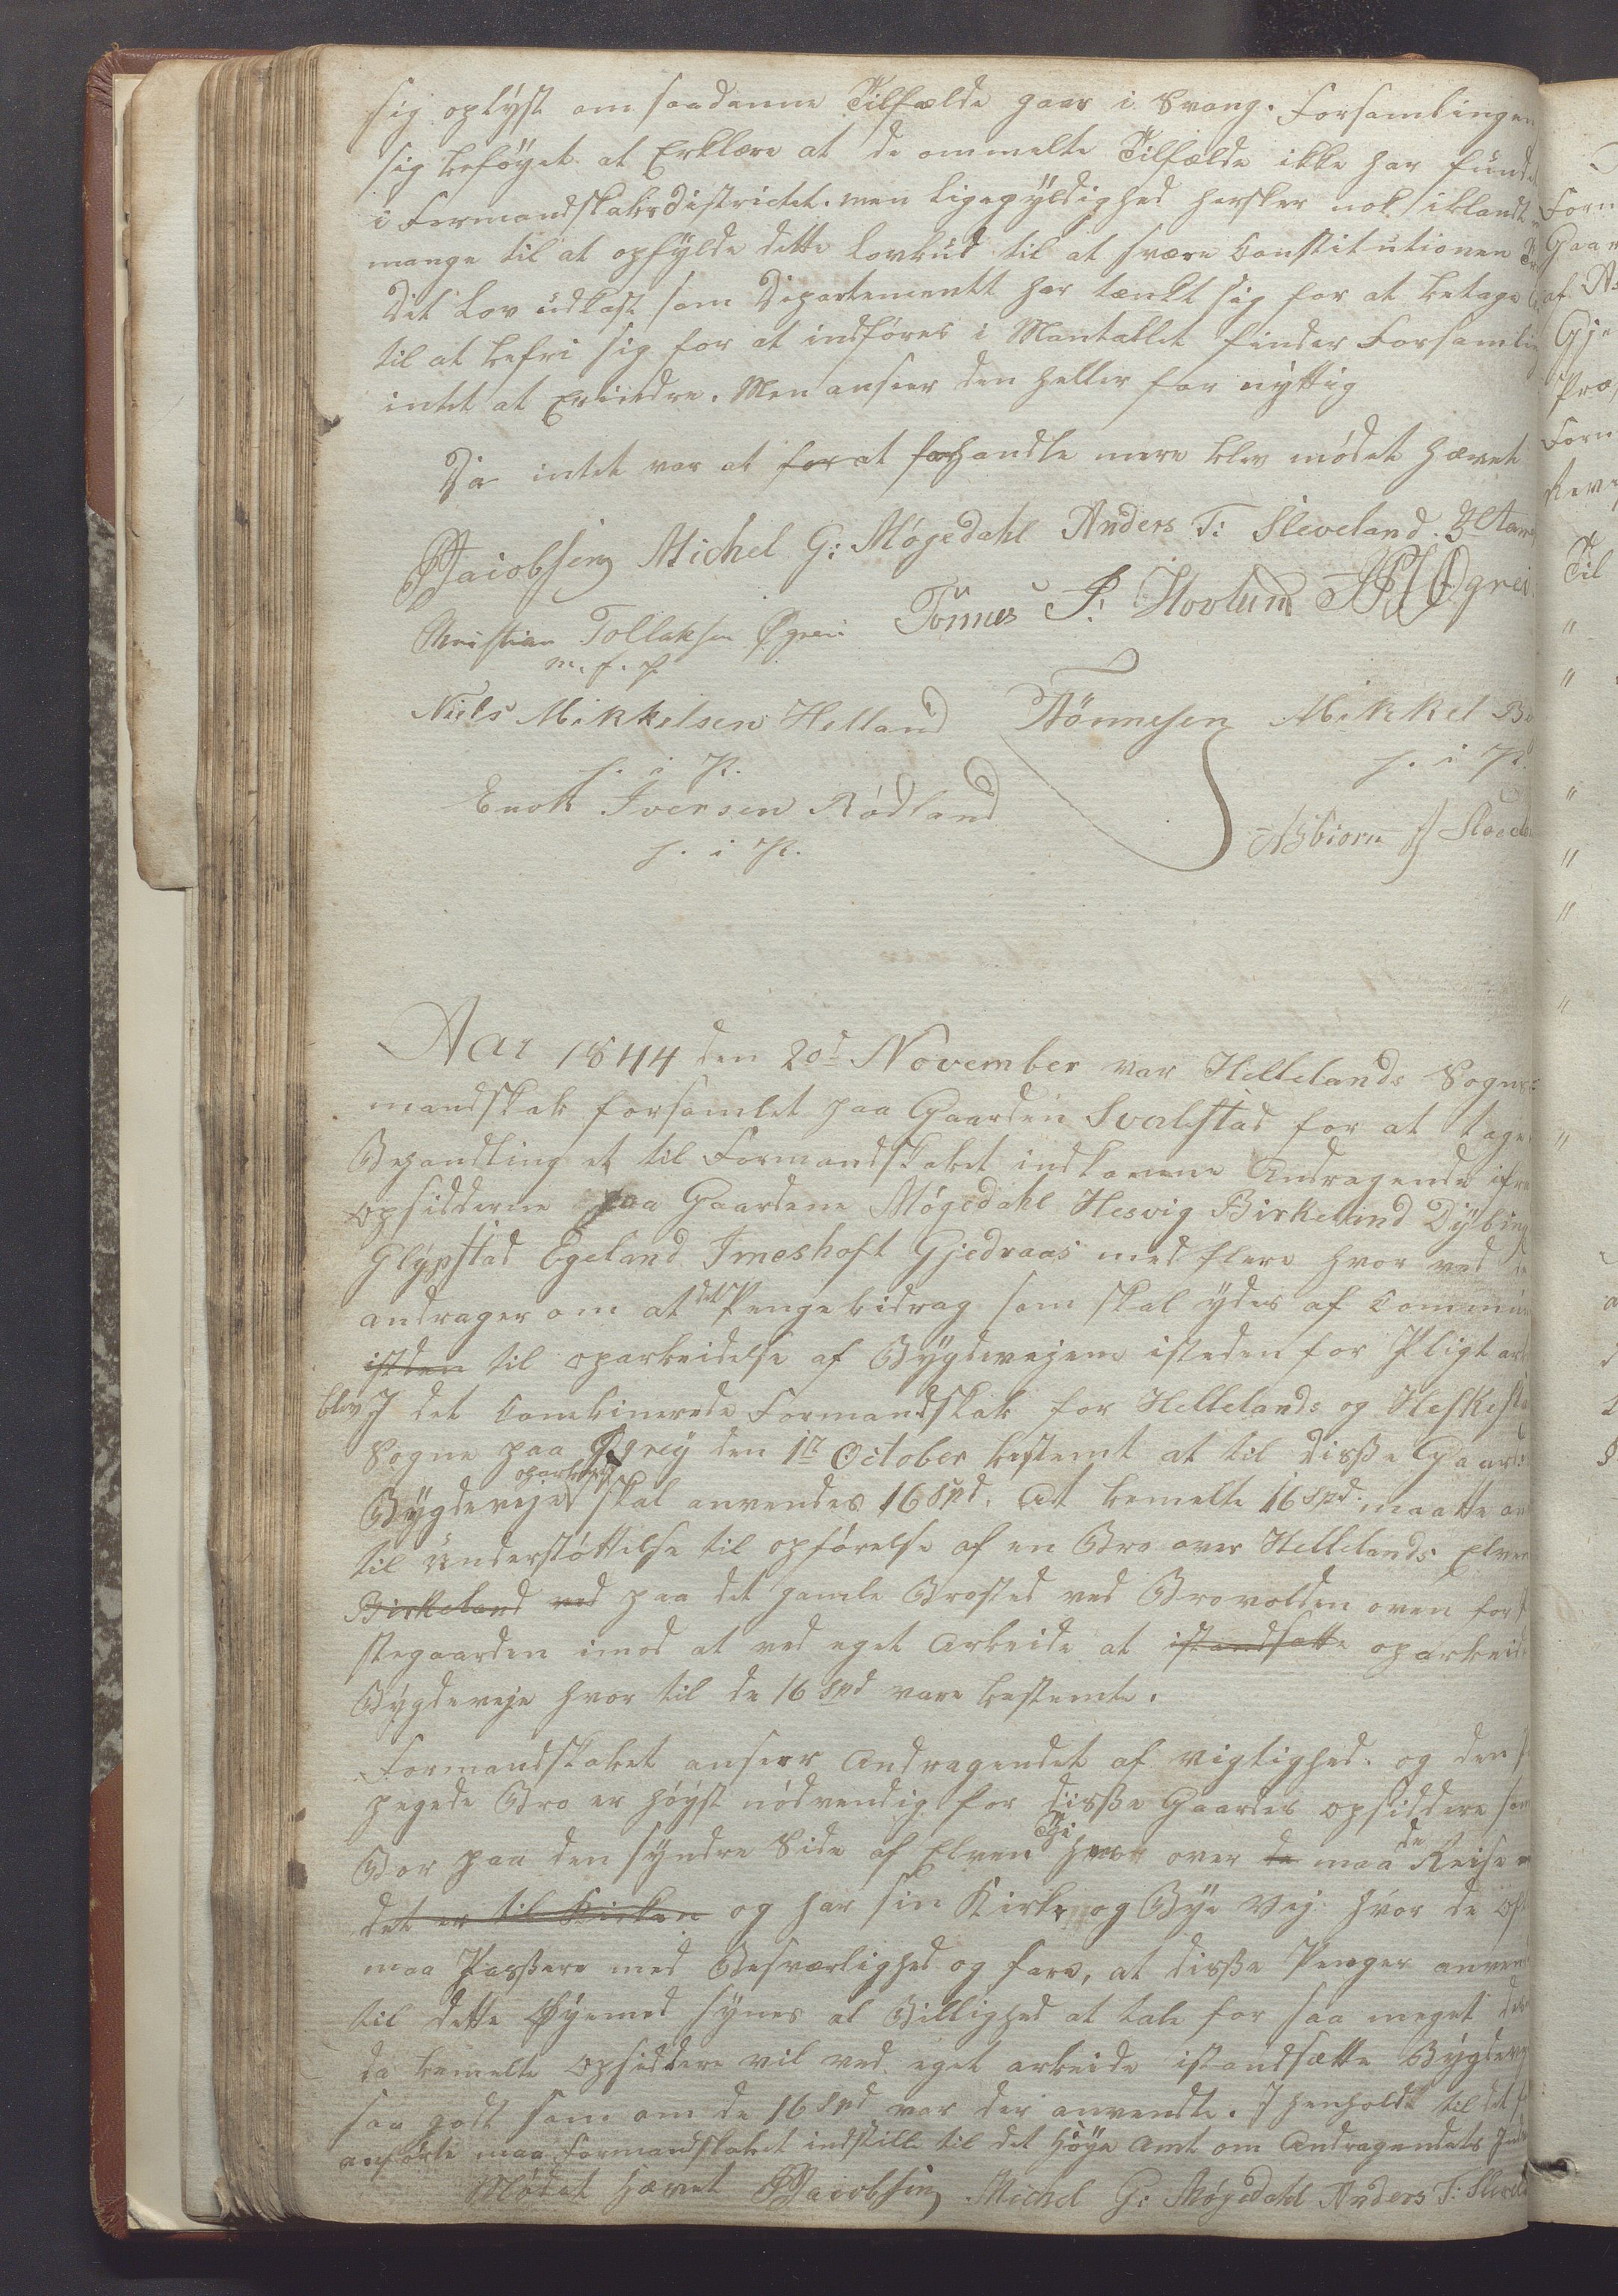 sig oplyst om saadanne Tilfælde gaar i Svang. Forsamlingen
sig beföyet at Erklære at de ommelte Tilfælde ikke har fundet
i Formandskabsdistrictet. men Ligegyldighed hersker nok iblandt
mange til at opfylde dette Lovbud til at svære Constitutionen
Det Lov udkast som Departementt har tænkt sig for at betage
til at befri sig for at indföres i Mantallet finder Forsamling
intet at Erindre. Men anseer den heller for nyttig
Da intet var at for at forhandle mere blev mödet hævet
PJacobsen Michel G: Møgedahl Anders T: Sleveland.
Christian Tollaksen Øgrei Tönnes P. Hovlund Øgrei
m. f. P
Niels Mikkelsen Helland Tönnesen Mikkel
h. i P. h. i P.
Enok Iversen Rödland
h. i P. Asbiorn
Aar 1844 den 20d November var Hellelands Sogne
mandskab forsamlet paa Gaarden Svalestad for at tage
Behandling et til Formandskabet indkomne Andragende ifra
Opsidderne paa Gaardene Møgedahl Hesvig Birkeland Dybing
Glypstad Egeland Imeshoft Gjedraas med flere hvor ved
andrager om at det Pengebidrag som skal ydes af Commun
istden til oparbeidelse af Bygdevejene isteden for Pligtar
blev I det Combinerede Formandskab for Hellelands og Heskesta
Sogne paa Øgrey den 1st October bestemt at til disse Gaard
Bygdeveje oparbeid skal anvendes 16 Spd. At bemelte 16 Spd. maatte an
til Understöttelse til opförelse af en Bro over Hellelands Elven
Birkeland ved paa det gamle Brosted ved Brovolden oven for
stegaarden imod at ved eget Arbeide at istandsætte oparbeide
Bygdeveje hvor til de 16 Spd vare bestemte.
Formandskabet anseer Andragendet af vigtighed. og den
pegede Bro er höyst nödvendig for disse Gaardes Opsiddere som
Bor paa den syndre Side af Elven hvor over de maa de Reise
det er til Kirken og har sin Kirke og Bye Vej hvor de Oft
maa Passere med Besværlighed og fare, at disse Penger anven
til dette Øyemed synes al Billighed at tale for saa meget
da bemelte Opsiddere vil ved eget arbeide istandsætte Bygdeve
saa godt som om de 16 Spd var der anvendte. I henhold til det
anförte maa Formandskabet indstille til det Höye Amt om Andragendets
Mödet hævet PJacobsen Michel G: Møgedahl Anders T: Slevela
Forn
Gaar
af
Gje
Præ
Forn
Til